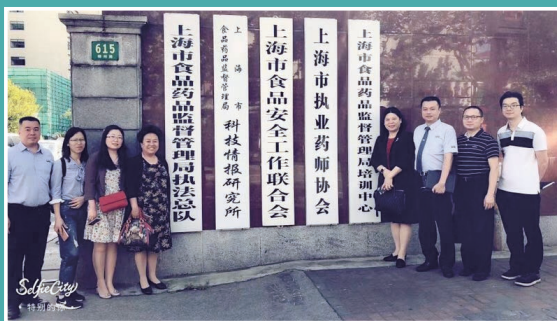 615
上海市食品药品监督管理局执法总队
上海市
食品药品监督管理局
科技情报研究所
上海市食品安全工作联合会
上海市执业药师协会
上海市食品药品监督管理局培训中心
SelfieCity
特别的你